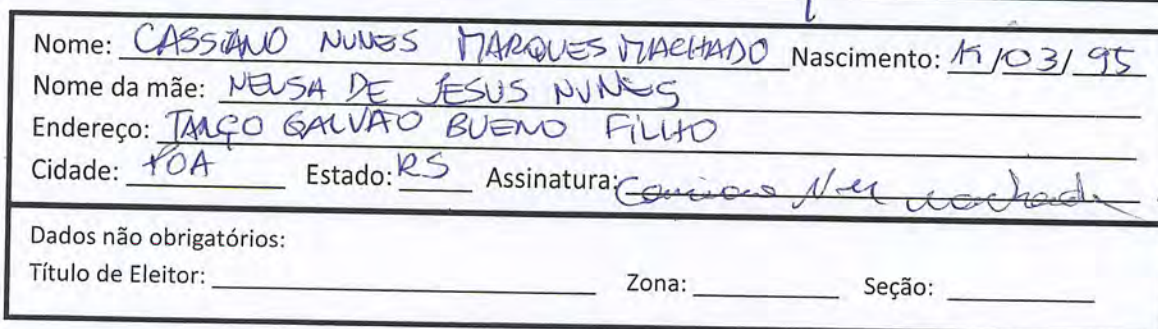 Nome: CASSIANO NUNES MARQUES MACHADO Nascimento: 15/03/95
Nome da mãe: NEUSA DE JESUS NUNES
Endereço: TARÇO GALVAO BUENO FILHO
Cidade: POA Estado: RS Assinatura:
Dados não obrigatórios:
Título de Eleitor: Zona: Seção: